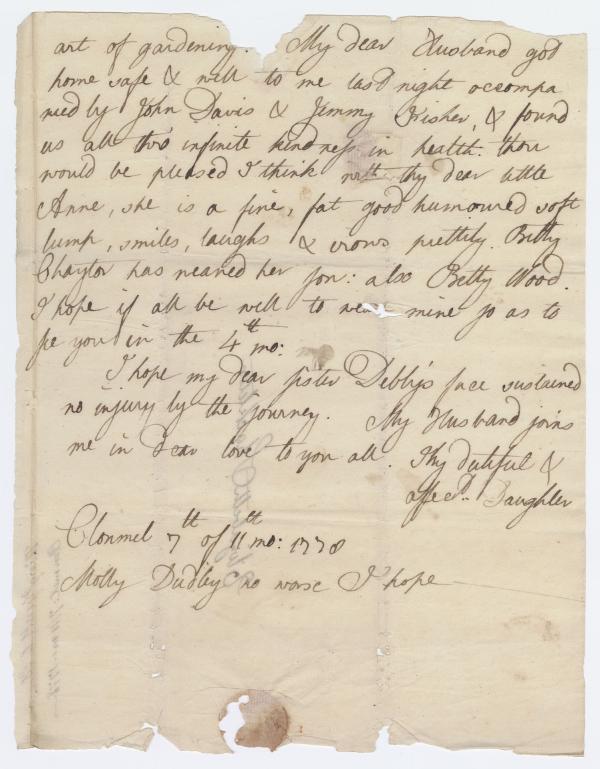 art of gardening. My dear Husband got
home safe & well to me last night accompa
nied by John Davis & Jemmy Fisher, & found
us all thro' infinite kindness in health. thou
would be pleased I think wth. thy dear little
Anne, she is a fine, fat good humoured soft
lump, smiles, laughs & crows prettily. Betty
Chaytor has weaned her son: also Betty Wood.
I hope if all be well to wean mine so as to
see you in the 4th mo:
I hope my dear sister Debby's face sustained
no injury by the journey. My Husband joins
me in dear love to you all. Thy dutiful &
affecd. Daughter
Clonmel 7th of 11th mo: 1778
Molly Dudley no worse I hope